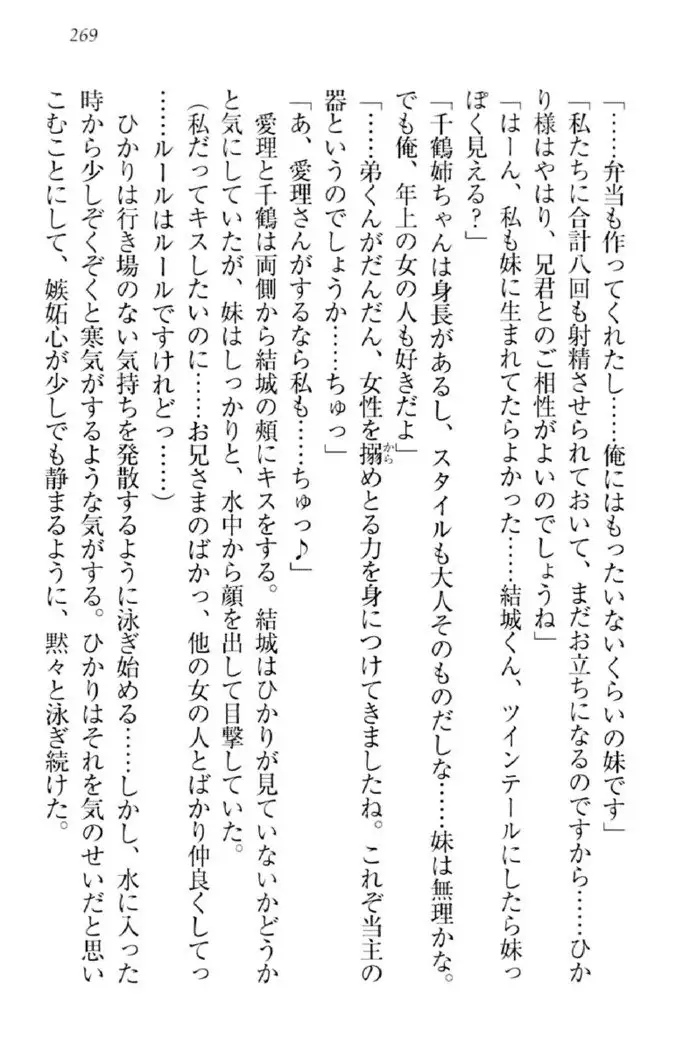 269
「……弁当も作ってくれたし……俺にはもったいないくらいの妹です」
「私たちに合計八回も射精させられておいて、まだお立ちになるのですから……ひか
り様はやはり、兄君とのご相性がよいのでしょうね」
「はーん、私も妹に生まれてたらよかった……結城くん、ツインテールにしたら妹っ
ぽく見える？」
「千鶴姉ちゃんは身長があるし、スタイルも大人そのものだしな……妹は無理かな。
でも俺、年上の女の人も好きだよ」
「……弟くんがだんだん、女性を搦めとる力を身につけてきましたね。これぞ当主の
器というのでしょうか……ちゅっ」
「あ、愛理さんがするなら私も……ちゅっ♪」
愛理と千鶴は両側から結城の頬にキスをする。結城はひかりが見ていないかどうか
と気にしていたが、妹はしっかりと、水中から顔を出して目撃していた。
（私だってキスしたいのに……お兄さまのばかっ、他の女の人とばかり仲良くしてっ
……ルールはルールですけれどっ……）
ひかりは行き場のない気持ちを発散するように泳ぎ始める……しかし、水に入った
時から少しぞくぞくと寒気がするような気がする。ひかりはそれを気のせいだと思い
こむことにして、嫉妬心が少しでも静まるように、黙々と泳ぎ続けた。